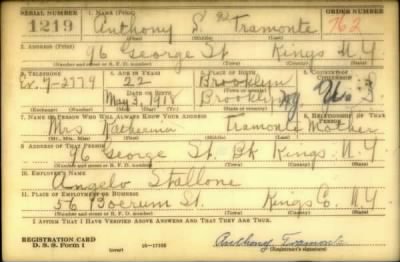 SERIAL NUMBER 1. NAME (Print) ORDER NUMBER
1219 Anthony S. Tramonte 762
(First) (Middle) (Last)
2. ADDRESS (Print)
96 George St Kings N.Y
(Number and street or R. F. D. number) (Town) (County) (State)
3. TELEPHONE 4. AGE IN YEARS 5. PLACE OF BIRTH 6. COUNTRY OF CITIZENSHIP
Ev. 7-2779 22 Brooklyn
DATE OF BIRTH
May 3, 1918 Brooklyn NY U. S
(Exchange) (Number) (Mo.) (Day) (Yr.) (State or country)
7. NAME OF PERSON WHO WILL ALWAYS KNOW YOUR ADDRESS RELATIONSHIP OF THAT PERSON
Mrs Katherina Tramonte Mother
(Mr., Mrs., Miss) (First) (Middle) (Last)
8. ADDRESS OF THAT PERSON
96 George St. Bk Kings. N.Y
(Number and street or R. F. D. number) (Town) (County) (State)
10. EMPLOYER'S NAME
Angelo Stallone
11. PLACE OF EMPLOYMENT OR BUSINESS
56 Boerum St. Kings Co. N.Y
(Number and street or R. F. D. number) (Town) (County) (State)
I AFFIRM THAT I HAVE VERIFIED ABOVE ANSWERS AND THAT THEY ARE TRUE.
REGISTRATION CARD
D. S. S. Form 1 (over) 16-17105 Anthony Tramonte
(Registrant's signature)